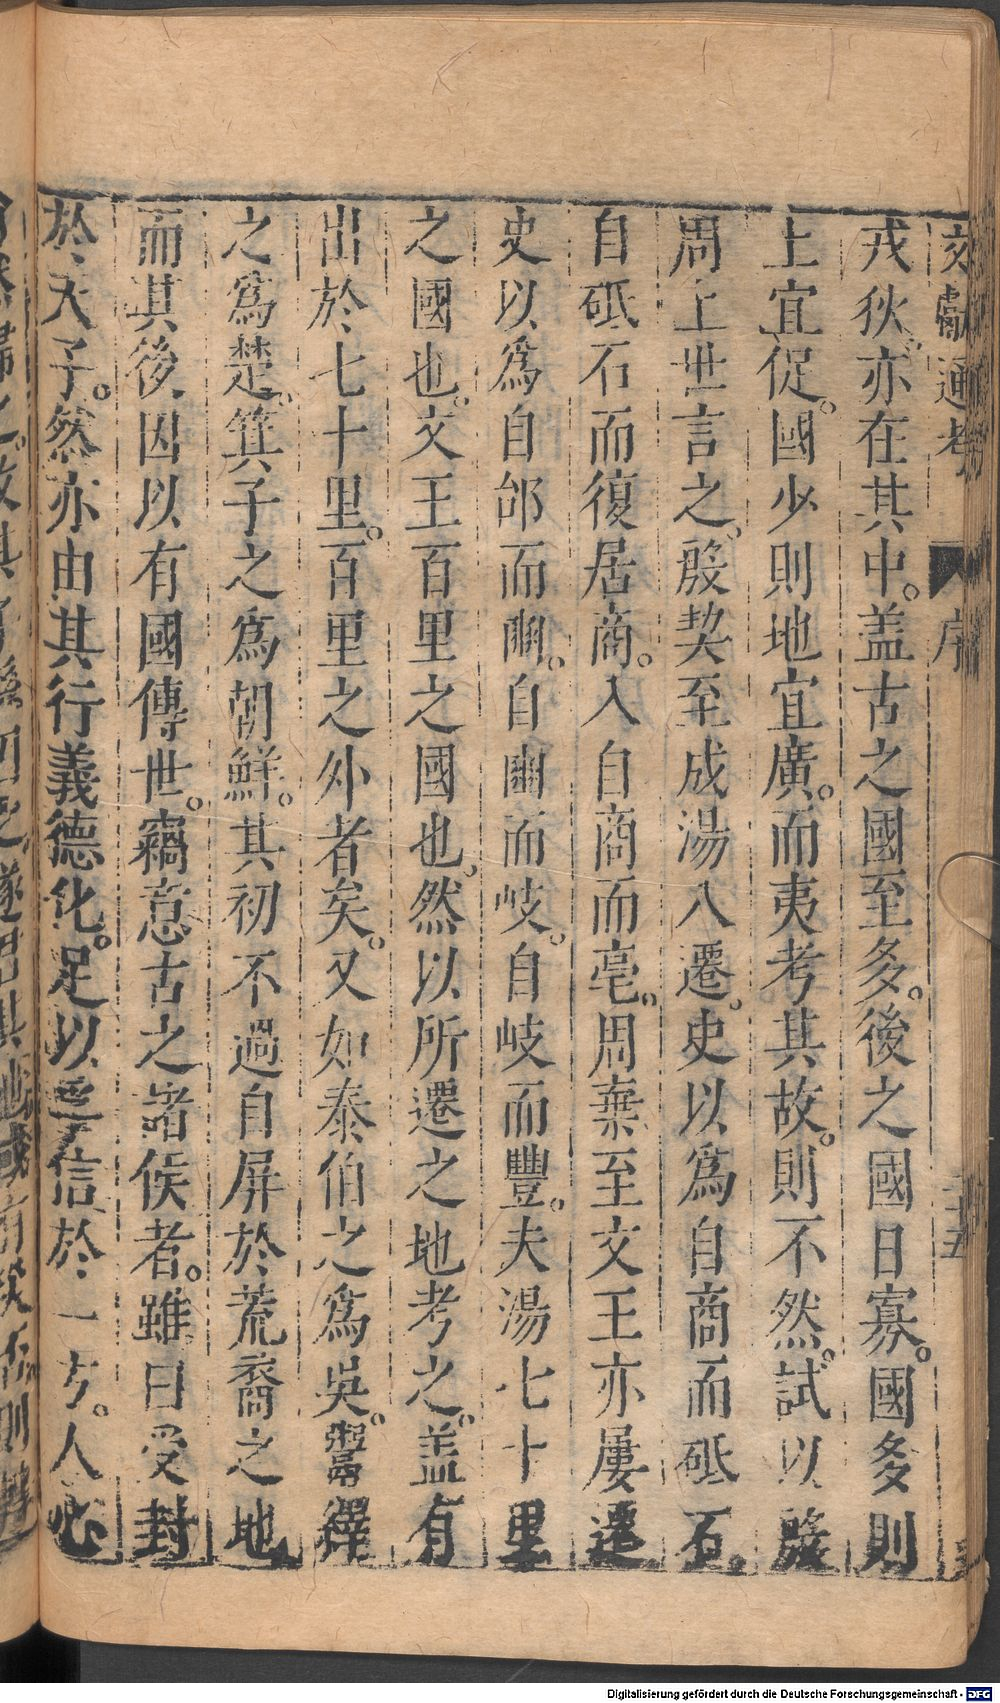 文獻通考 序 二十五
戎狄亦在其中。盖古之國至多。後之國日寡。國多則
土宜促。國少則地宜廣。而夷考其故。則不然。試以殷
周上世言之。殷契至成湯八遷。史以為自商而砥石。
自砥石而復居商。入自商而亳。周棄至文王亦屢遷
史以為自邰而豳。自豳而岐。自岐而豐。夫湯七十里
之國也。文王百里之國也。然以所遷之地考之。盖有
出於七十里。百里之外者矣。又如泰伯之為吳。鬻繹
之為楚。箕子之為朝鮮。其初不過自屏於荒裔之地
而其後因以有國傳世。竊意古之諸侯者。雖曰受封
於天子。然亦由其行義德化。足以孚信於一方。人心
Digitalisierung gefördert durch die Deutsche Forschungsgemeinschaft - DFG